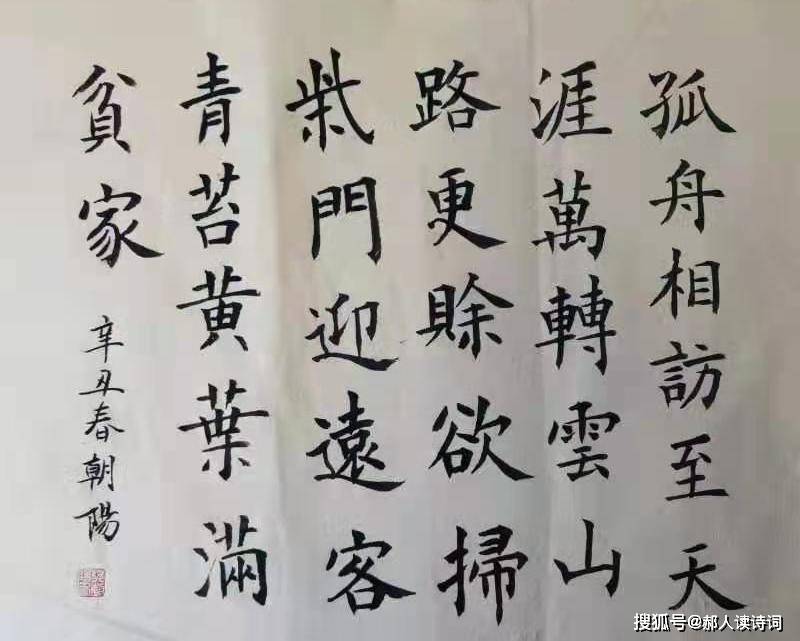 孤舟相訪至天
涯萬轉雲山
路更賒欲掃
柴門迎遠客
青苔黄葉滿
貧家
辛丑春朝陽
搜狐号@郝人读诗词